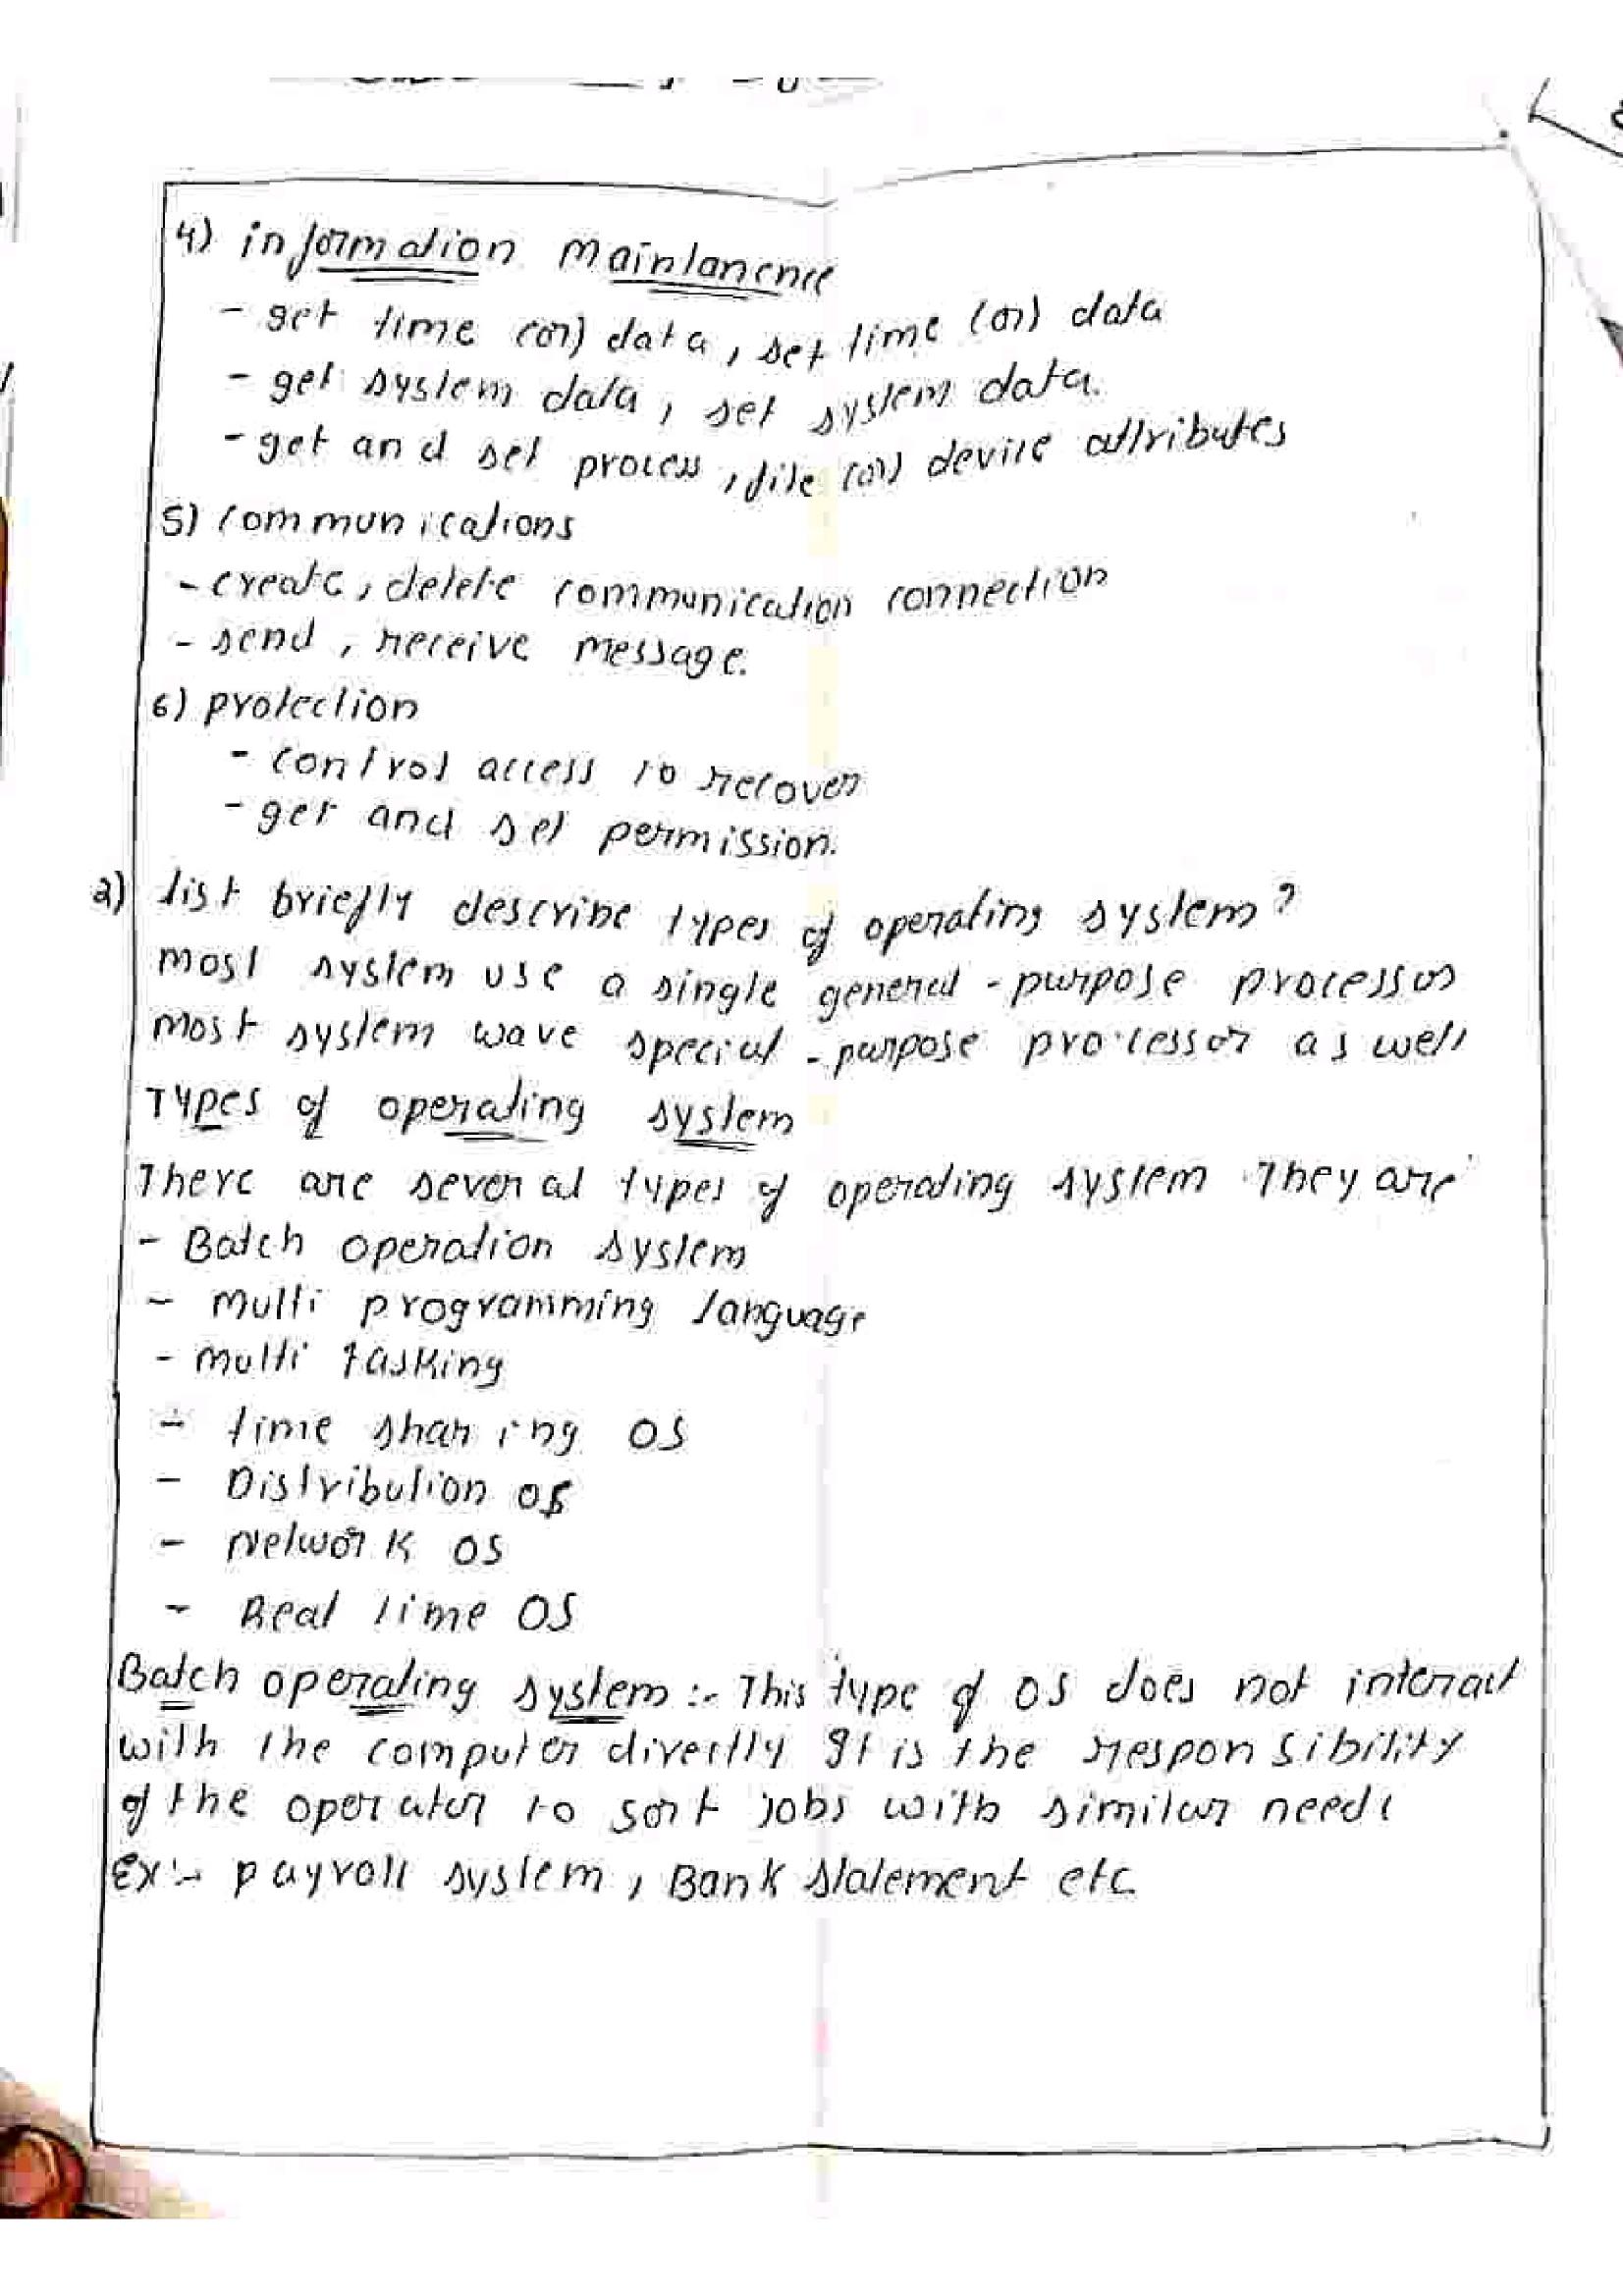 4) information Maintanence
- get time (or) data, set time (or) data
- get system data, set system data.
- get and set process, file (or) device attributes
5) communications
- create, delete communication connection
- send, receive message.
6) protection
- control access to recover
- get and set permission.
2) list briefly describe types of operating system?
most system use a single general-purpose processor
most system wave special-purpose processor as well
Types of operating system
There are several types of operating system They are
- Batch operation system
- Multi programming language
- Multi tasking
- time sharing OS
- Distribution OS
- Network OS
- Real time OS
Batch operating system:- This type of OS does not interact
with the computer directly It is the responsibility
of the operator to sort jobs with similar needs
Ex:- payroll system, Bank statement etc